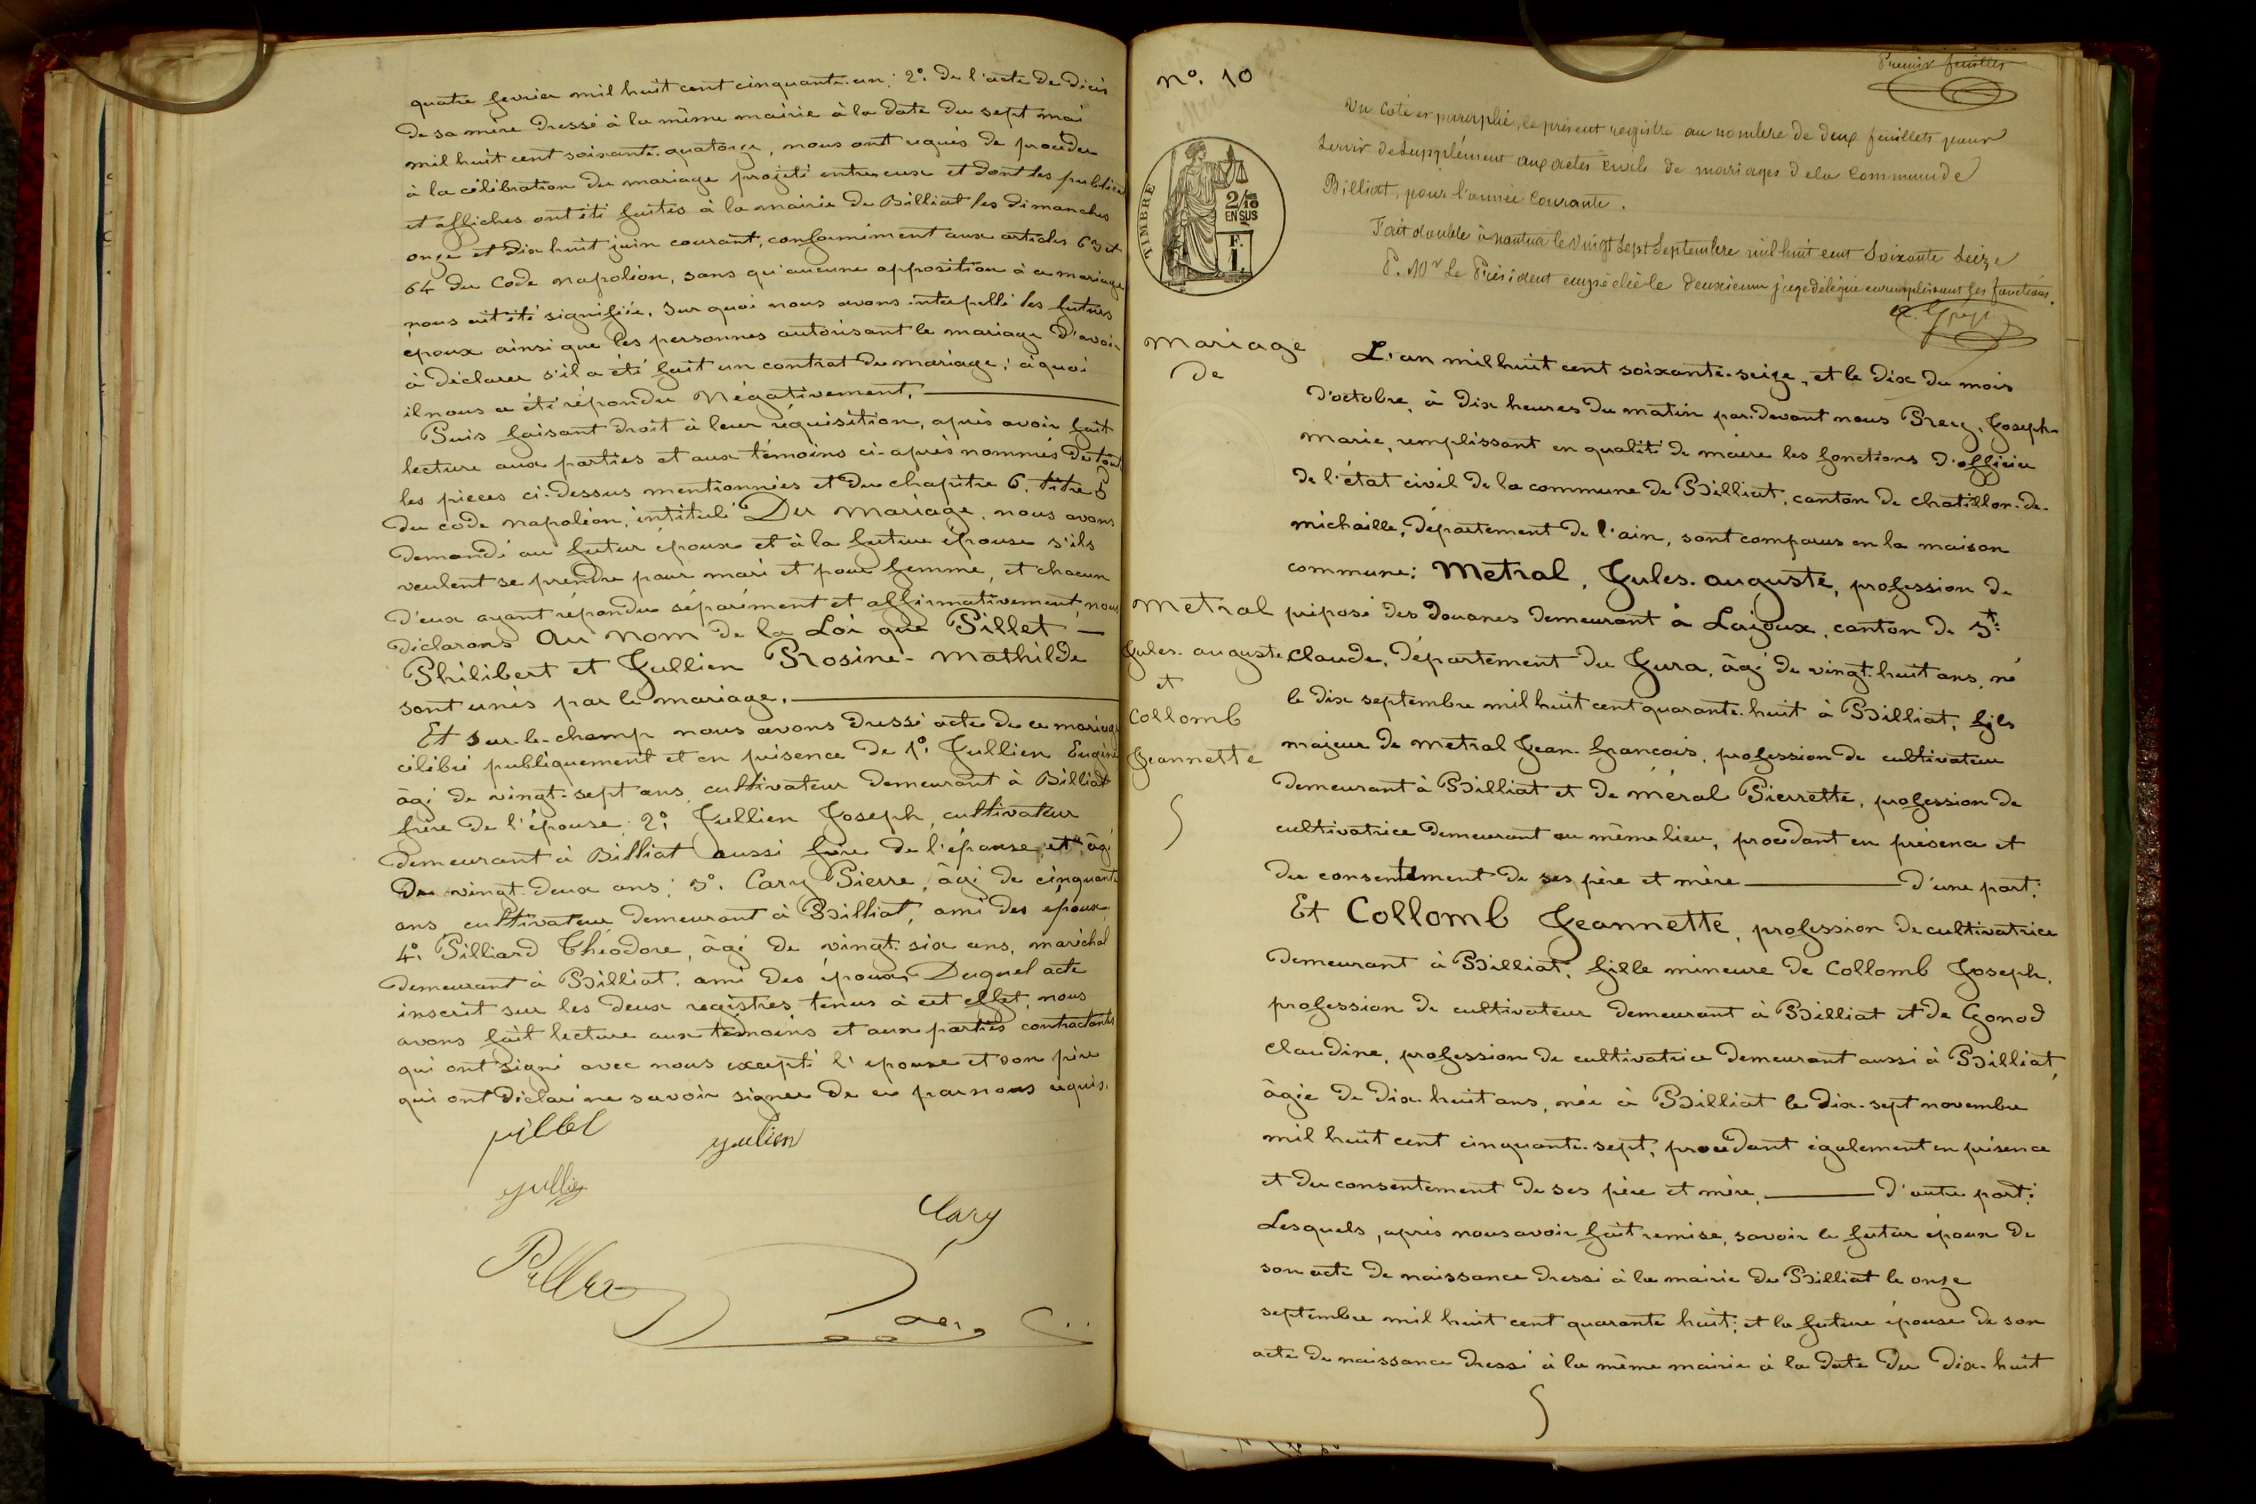 quatre fevrier mil huit cent cinquante-un; 2° de l'acte de décès
de sa mère dressé à la même mairie à la date du sept mai
mil huit cent soixante-quatorze, nous ont requis de procéder
à la célébration du mariage projeté entre eux et dont les publica
et affiches ont été faites à la mairie de Billiat les dimanches
onze et dix huit juin courant, conformément aux articles 63 et
64 du Code napoléon, sans qu'aucune opposition à ce mariage
nous ait été signifiée. Sur quoi nous avons interpellé les futurs
époux ainsi que les personnes autorisant le mariage d'avoir
à déclarer s'il a été fait un contrat de mariage; à quoi
il nous a été répondu Négativement.
Puis faisant droit à leur réquisition, après avoir fait
lecture aux parties et aux témoins ci-après nommés de tout
les pieces ci-dessus mentionnées et du chapitre 6. titre 5
du code napoléon, intitulé Du Mariage, nous avons
demandé au futur époux et à la future épouse s'ils
veulent se prendre pour mari et pour femme, et chacun
d'eux ayant répondu séparément et affirmativement, nous
déclarons Au Nom de la Loi que Pillet
Philibert et Jullien Rosine-Mathilde
sont unis par le mariage.
Et sur-le-champ nous avons dressé acte de ce mariage
célébré publiquement et en présence de 1° Jullien Eugène
âgé de vingt-sept ans, cultivateur demeurant à Billiat
frère de l'épouse; 2° Jullien Joseph, cultivateur
demeurant à Billiat aussi frère de l'épouse, et âgé
de vingt-deux ans; 3°. Cary Pierre, âgé de cinquante
ans, cultivateur demeurant à Billiat, ami des époux
4° Pilliard Théodore, âgé de vingt six ans, maréchal
demeurant à Billiat, ami des époux. Duquel acte
inscrit sur les deux registres tenus à cet effet, nous
avons fait lecture aux témoins et aux parties contractants
qui ont signé avec nous excepté l'épouse et son père
qui ont déclaré ne savoir signer de ce par nous requis.
pillet
Cary
N°. 10
Premier feuillet
Vu Coté et paraphé, le présent registre au nombre de deux feuillets pour
servir de supplément aux actes civils de mariages de la commune de
Billiat, pour l'année courante.
Fait double à nantua le vingt sept Septembre mil huit cent soixante seize
P. Mr le Président empêché le deuxieme juge délégué en remplissant ses fonctions.
TIMBRE
2/10
EN SUS
F.
1.
Mariage
de
Metral
Jules-auguste
et
Collomb
Jeannette
L'an mil huit cent soixante-seize, et le dix du mois
d'octobre, à dix heures du matin par-devant nous Joseph-
Marie, remplissant en qualité de maire les fonctions d'officier
de l'état civil de la commune de Billiat, canton de chatillon-de-
michaille, département de l'ain, sont comparus en la maison
commune: Metral, Jules-auguste, profession de
préposé des douanes demeurant à Lajoux, canton de St
claude, département du Jura, âgé de vingt-huit ans, né
le dix septembre mil huit cent quarante-huit à Billiat, fils
majeur de Metral Jean-françois, profession de cultivateur
demeurant à Billiat et de Méral Pierrette, profession de
cultivatrice demeurant au même lieu, procédant en présence et
du consentement de ses père et mère d'une part:
Et Collomb Jeannette, profession de cultivatrice
demeurant à Billiat, fille mineure de Collomb Joseph,
profession de cultivateur demeurant à Billiat et de Gonod
claudine, profession de cultivatrice demeurant aussi à Billiat,
âgée de dix-huit ans, née à Billiat le dix-sept novembre
mil huit cent cinquante-sept, procédant également en présence
et du consentement de ses père et mère, d'autre part:
Lesquels, après nous avoir fait remise, savoir le futur époux de
son acte de naissance dressé à la mairie de Billiat le onze
septembre mil huit cent quarante huit; et la future épouse de son
acte de naissance dressé à la même mairie à la date du dix-huit